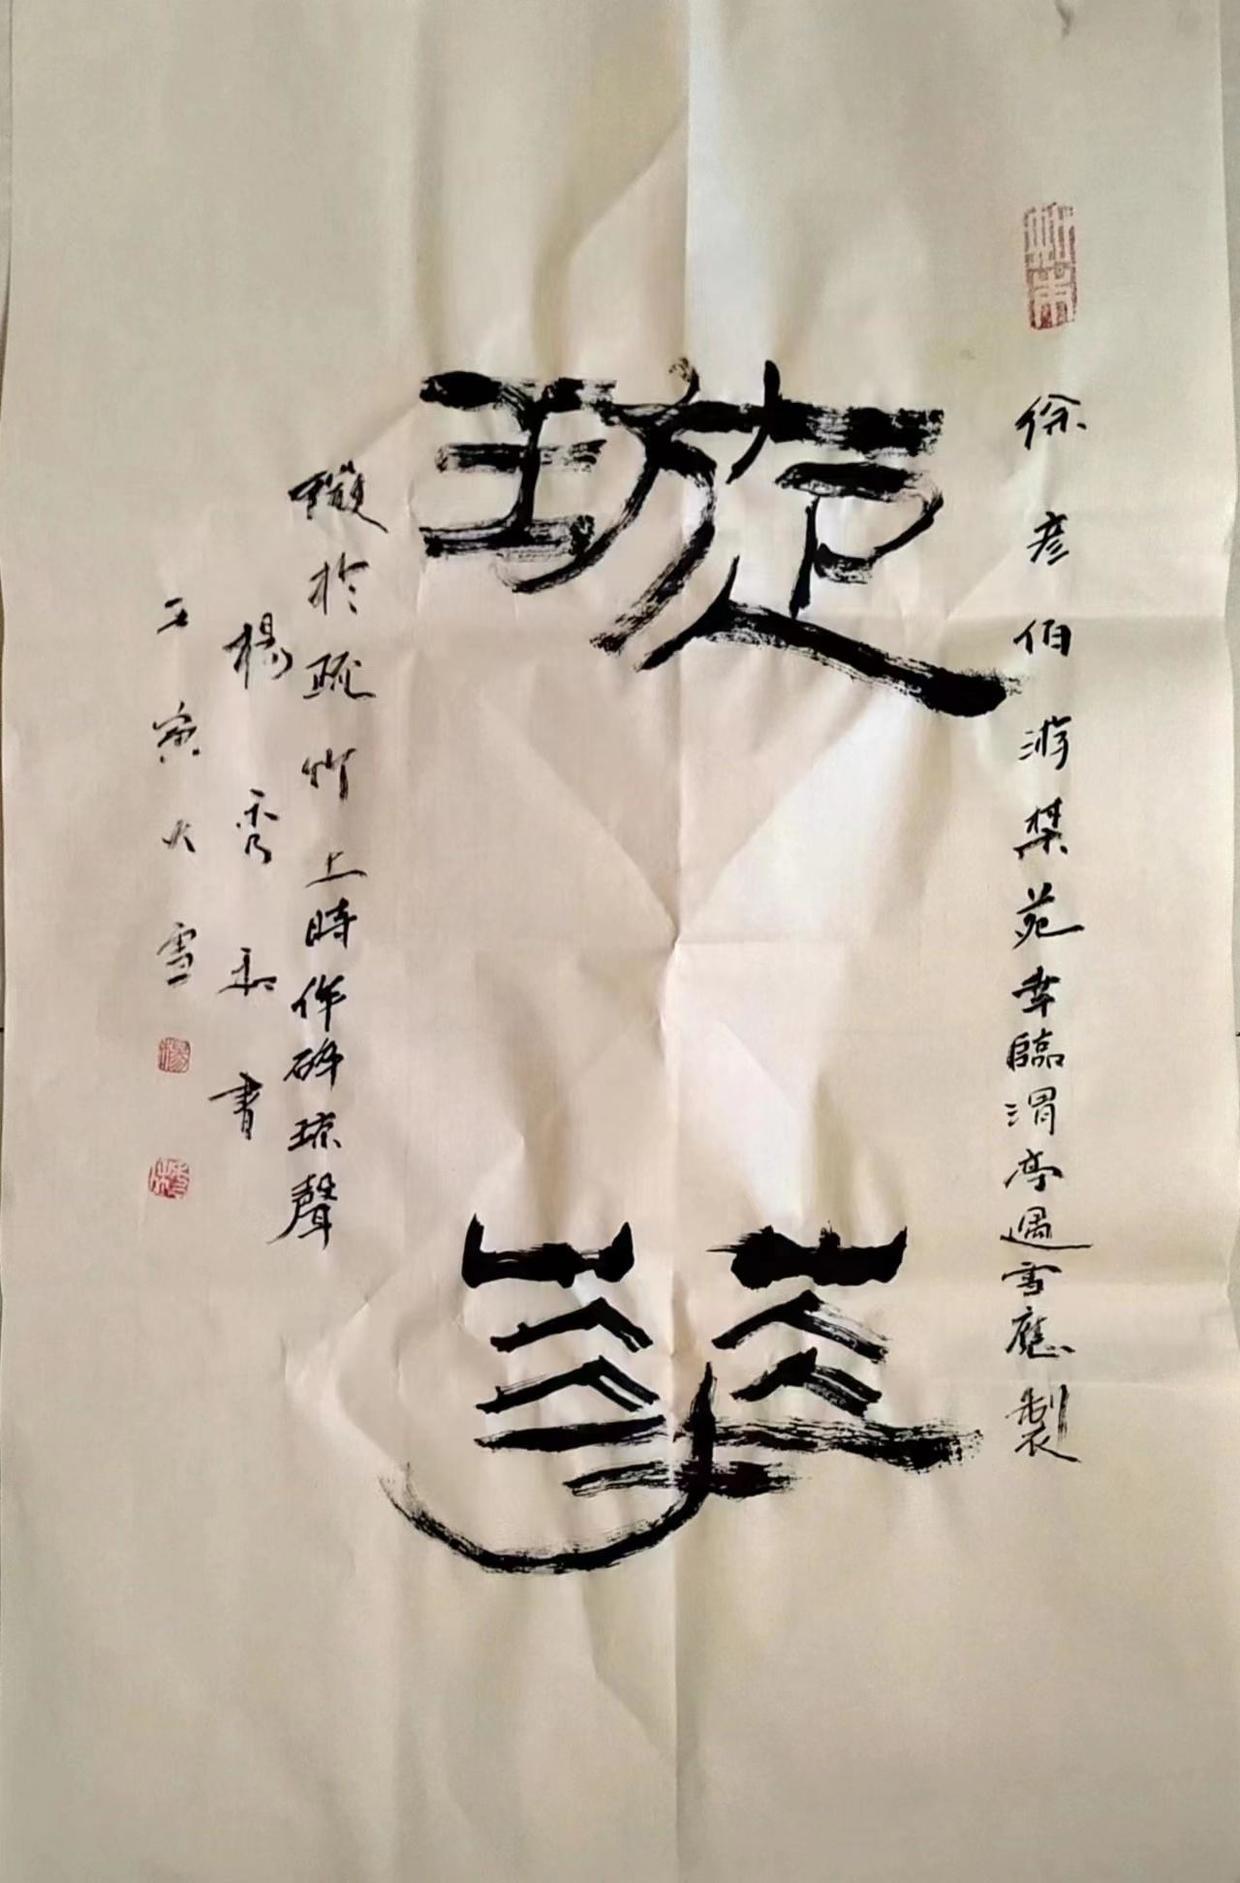 徐彦伯游禁苑幸臨渭亭遇雪應製
璇華
於疏竹上時作碎琼聲
楊秀 書
壬寅大雪